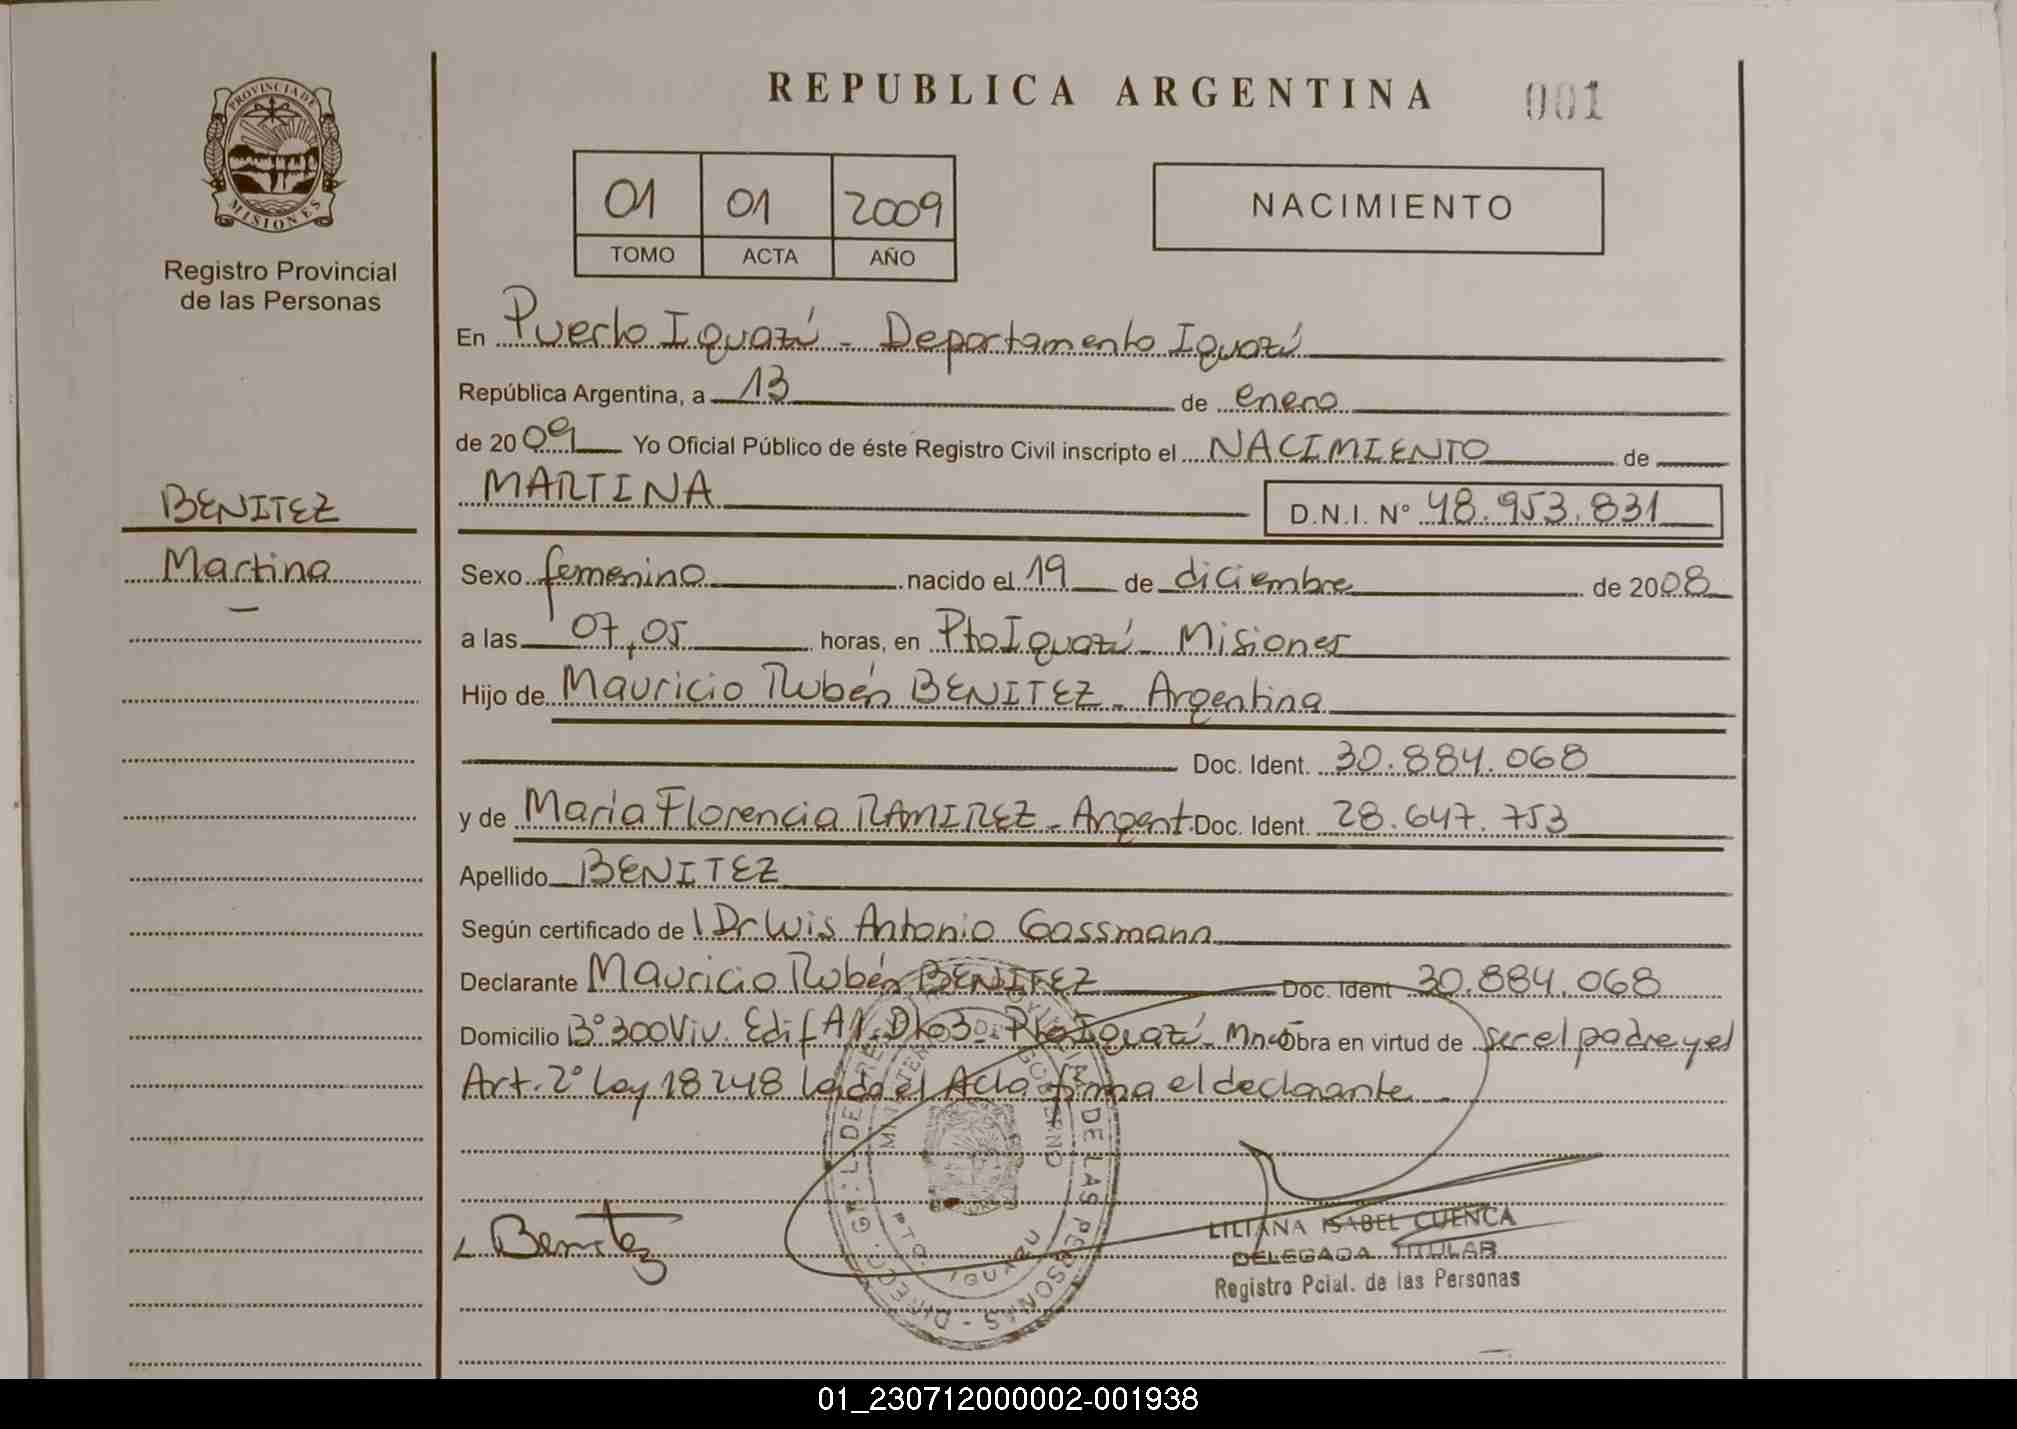 REPUBLICA ARGENTINA 001
PROVINCIA DE MISIONES
Registro Provincial
de las Personas
01 01 2009
TOMO ACTA AÑO
NACIMIENTO
BENITEZ
Martina
En Puerto Iguazú - Departamento Iguazú
República Argentina, a 13 de enero
de 2009 Yo Oficial Público de éste Registro Civil inscripto el NACIMIENTO de
MARTINA D.N.I. N° 48.953.831
Sexo femenino nacido el 19 de diciembre de 2008
a las 07,05 horas, en Pto Iguazú - Misiones
Hijo de Mauricio Rubén BENITEZ - Argentina
Doc. Ident. 30.884.068
y de María Florencia RAMIREZ - Argent. Doc. Ident. 28.647.753
Apellido BENITEZ
Según certificado de Dr Luis Antonio Gossmann
Declarante Mauricio Rubén BENITEZ Doc. Ident 30.884.068
Domicilio B° 300 Viv. Edif A1. Dto 3 - Pto Iguazú - Mnes Obra en virtud de ser el padre y el
Art. 2° Ley 18248 leída el Acta firma el declarante
Benitez
DIRECC. GRAL. DE REGISTRO DE LAS PERSONAS
MINISTERIO DE GOBIERNO
PTO. IGUAZU
LILIANA ISABEL CUENCA
DELEGADA TITULAR
Registro Pcial. de las Personas
01_230712000002-001938